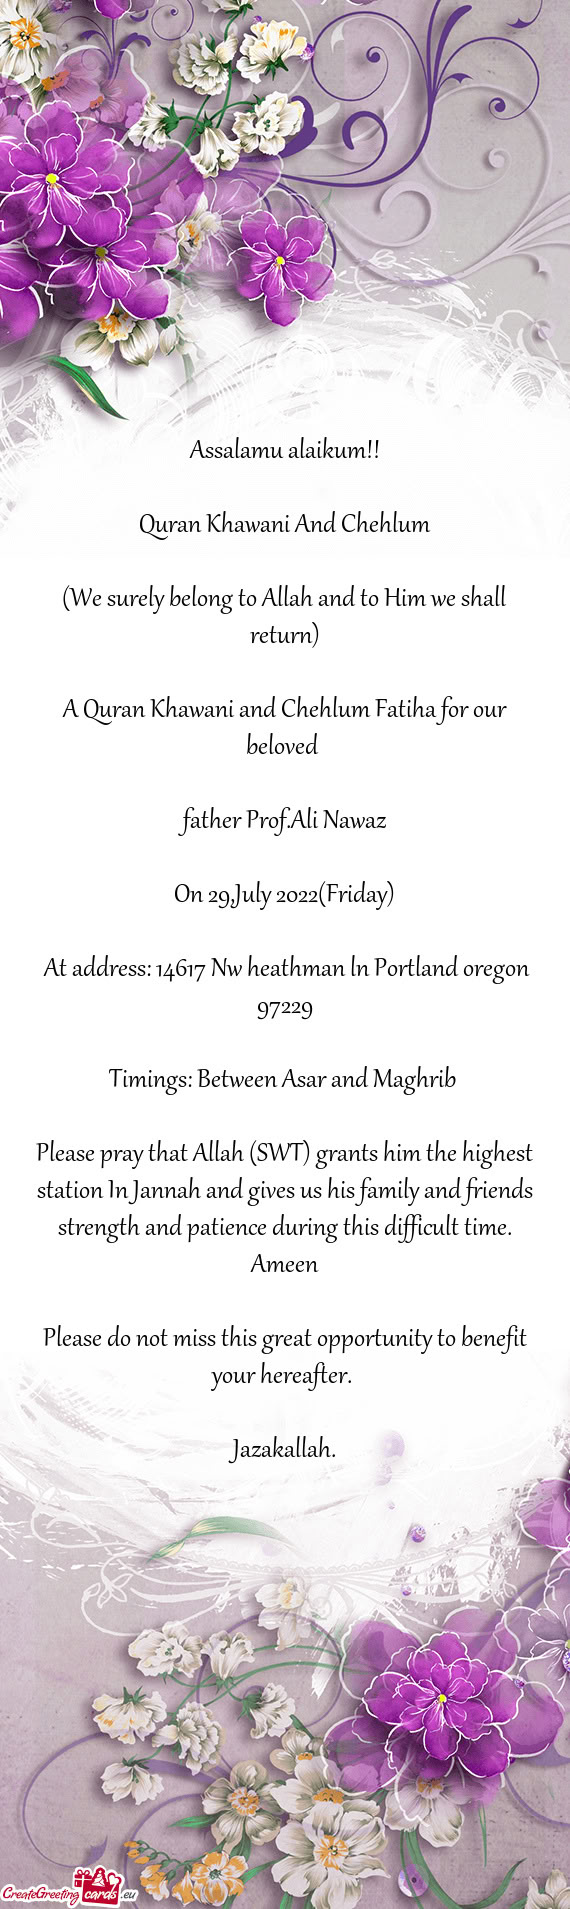 Assalamu alaikum!!
Quran Khawani And Chehlum
(We surely belong to Allah and to Him we shall
return)
A Quran Khawani and Chehlum Fatiha for our
beloved
father Prof.Ali Nawaz
On 29,July 2022(Friday)
At address: 14617 Nw heathman ln Portland oregon
97229
Timings: Between Asar and Maghrib
Please pray that Allah (SWT) grants him the highest
station In Jannah and gives us his family and friends
strength and patience during this difficult time.
Ameen
Please do not miss this great opportunity to benefit
your hereafter.
Jazakallah.
CreateGreeting cards .eu